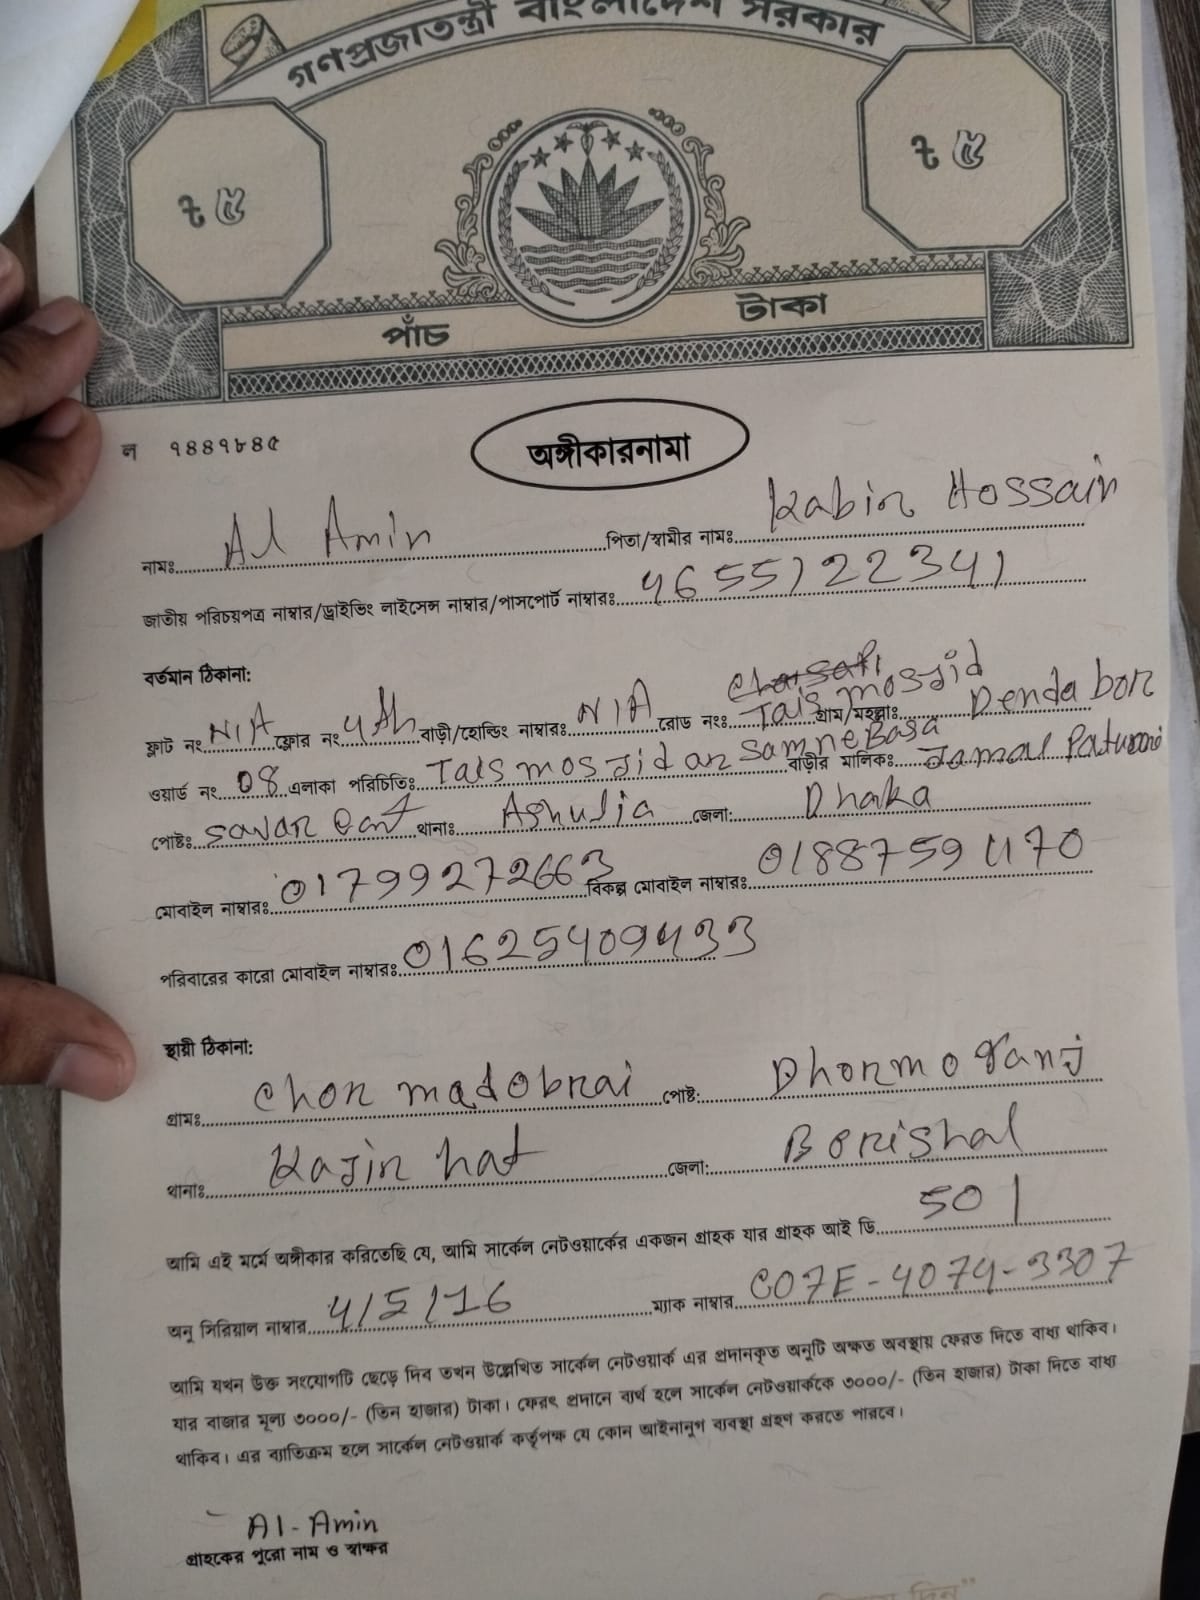 গণপ্রজাতন্ত্রী বাংলাদেশ সরকার
৳ ৫ ৳ ৫
পাঁচ টাকা
ল ৭৪৪৭৮৪৫
অঙ্গীকারনামা
নামঃ Al Amin পিতা/স্বামীর নামঃ Kabir Hossain
জাতীয় পরিচয়পত্র নাম্বার/ড্রাইভিং লাইসেন্স নাম্বার/পাসপোর্ট নাম্বারঃ 4655122341
বর্তমান ঠিকানা:
ফ্লাট নং N/A ফ্লোর নং 4th বাড়ী/হোল্ডিং নাম্বারঃ N/A রোড নংঃ Tals mosjid গ্রাম/মহল্লাঃ Denda bor
ওয়ার্ড নং 08 এলাকা পরিচিতিঃ Tals mosjid ar samne Basa বাড়ীর মালিকঃ Jamal
পোষ্টঃ Savar Cant থানাঃ Ashulia জেলা: Dhaka
মোবাইল নাম্বারঃ 01799272663 বিকল্প মোবাইল নাম্বারঃ 01887594170
পরিবারের কারো মোবাইল নাম্বারঃ 01625409433
স্থায়ী ঠিকানা:
গ্রামঃ Chor madobrai পোষ্ট: Dhormoganj
থানাঃ Kajir hat জেলা: Borishal
আমি এই মর্মে অঙ্গীকার করিতেছি যে, আমি সার্কেল নেটওয়ার্কের একজন গ্রাহক যার গ্রাহক আই ডি 501
অনু সিরিয়াল নাম্বার 4/5/16 ম্যাক নাম্বার C07E-4074-3307
আমি যখন উক্ত সংযোগটি ছেড়ে দিব তখন উল্লেখিত সার্কেল নেটওয়ার্ক এর প্রদানকৃত অনুটি অক্ষত অবস্থায় ফেরত দিতে বাধ্য থাকিব।
যার বাজার মূল্য ৩০০০/- (তিন হাজার) টাকা। ফেরৎ প্রদানে ব্যর্থ হলে সার্কেল নেটওয়ার্ককে ৩০০০/- (তিন হাজার) টাকা দিতে বাধ্য
থাকিব। এর ব্যাতিক্রম হলে সার্কেল নেটওয়ার্ক কর্তৃপক্ষ যে কোন আইনানুগ ব্যবস্থা গ্রহণ করতে পারবে।
Al-Amin
গ্রাহকের পুরো নাম ও স্বাক্ষর